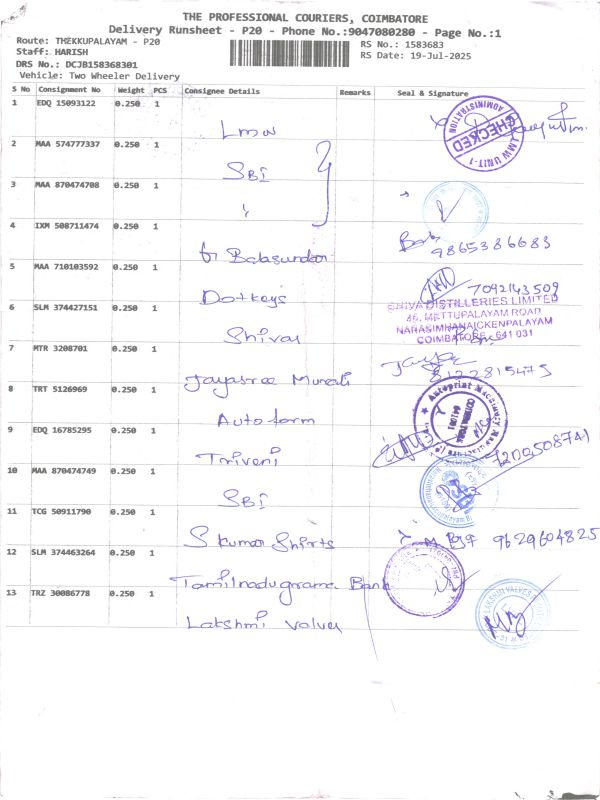 THE PROFESSIONAL COURIERS, COIMBATORE
Delivery Runsheet - P20 - Phone No.:9047080280 - Page No.:1
Route: THEKKUPALAYAM - P20
RS No.: 1583683
Staff: HARISH
RS Date: 19-Jul-2025
DRS No.: DCJB158368301
Vehicle: Two Wheeler Delivery
S No Consignment No Weight PCS Consignee Details Remarks Seal & Signature
1 EDQ 15093122 0.250 1 Lmw
ADMINISTRATION CHECKED LMW UNIT-1
2 MAA 574777337 0.250 1 SBI
3 MAA 870474708 0.250 1 "
4 IXM 508711474 0.250 1 Balasundar
9865386683
5 MAA 710103592 0.250 1 Dotkeys
7092143509
6 SLM 374427151 0.250 1 Shivas
SHIVA DISTILLERIES LIMITED
46, METTUPALAYAM ROAD
NARASIMHANAICKENPALAYAM
COIMBATORE - 641 031
7 MTR 3208701 0.250 1 Jayasree Murali
8122815475
8 TRT 5126969 0.250 1 Autoform
Autoprint Machinery COIMBATORE
9 EDQ 16785295 0.250 1 Triveni
7200508741
10 MAA 870474749 0.250 1 SBI
11 TCG 50911790 0.250 1 S Kumar Shirts
9629604825
12 SLM 374463264 0.250 1 Tamilnadugrama Bank
13 TRZ 30086778 0.250 1 Lakshmi Valves
LAKSHMI VALVES